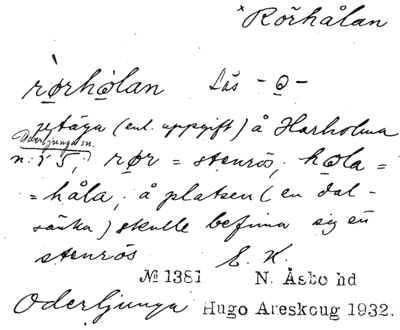 × Rörhålan
rørhølan Läs -o-
utäga (enl. uppgift) å Harholma
Oderljunga sn.
n:r 5, rør = stenrös, høla =
= håla, å platsen (en dal-
sänka) skulle befinna sig en
stenrös E. K.
№ 1381 N. Åsbo hd
Oderljunga Hugo Areskoug 1932.